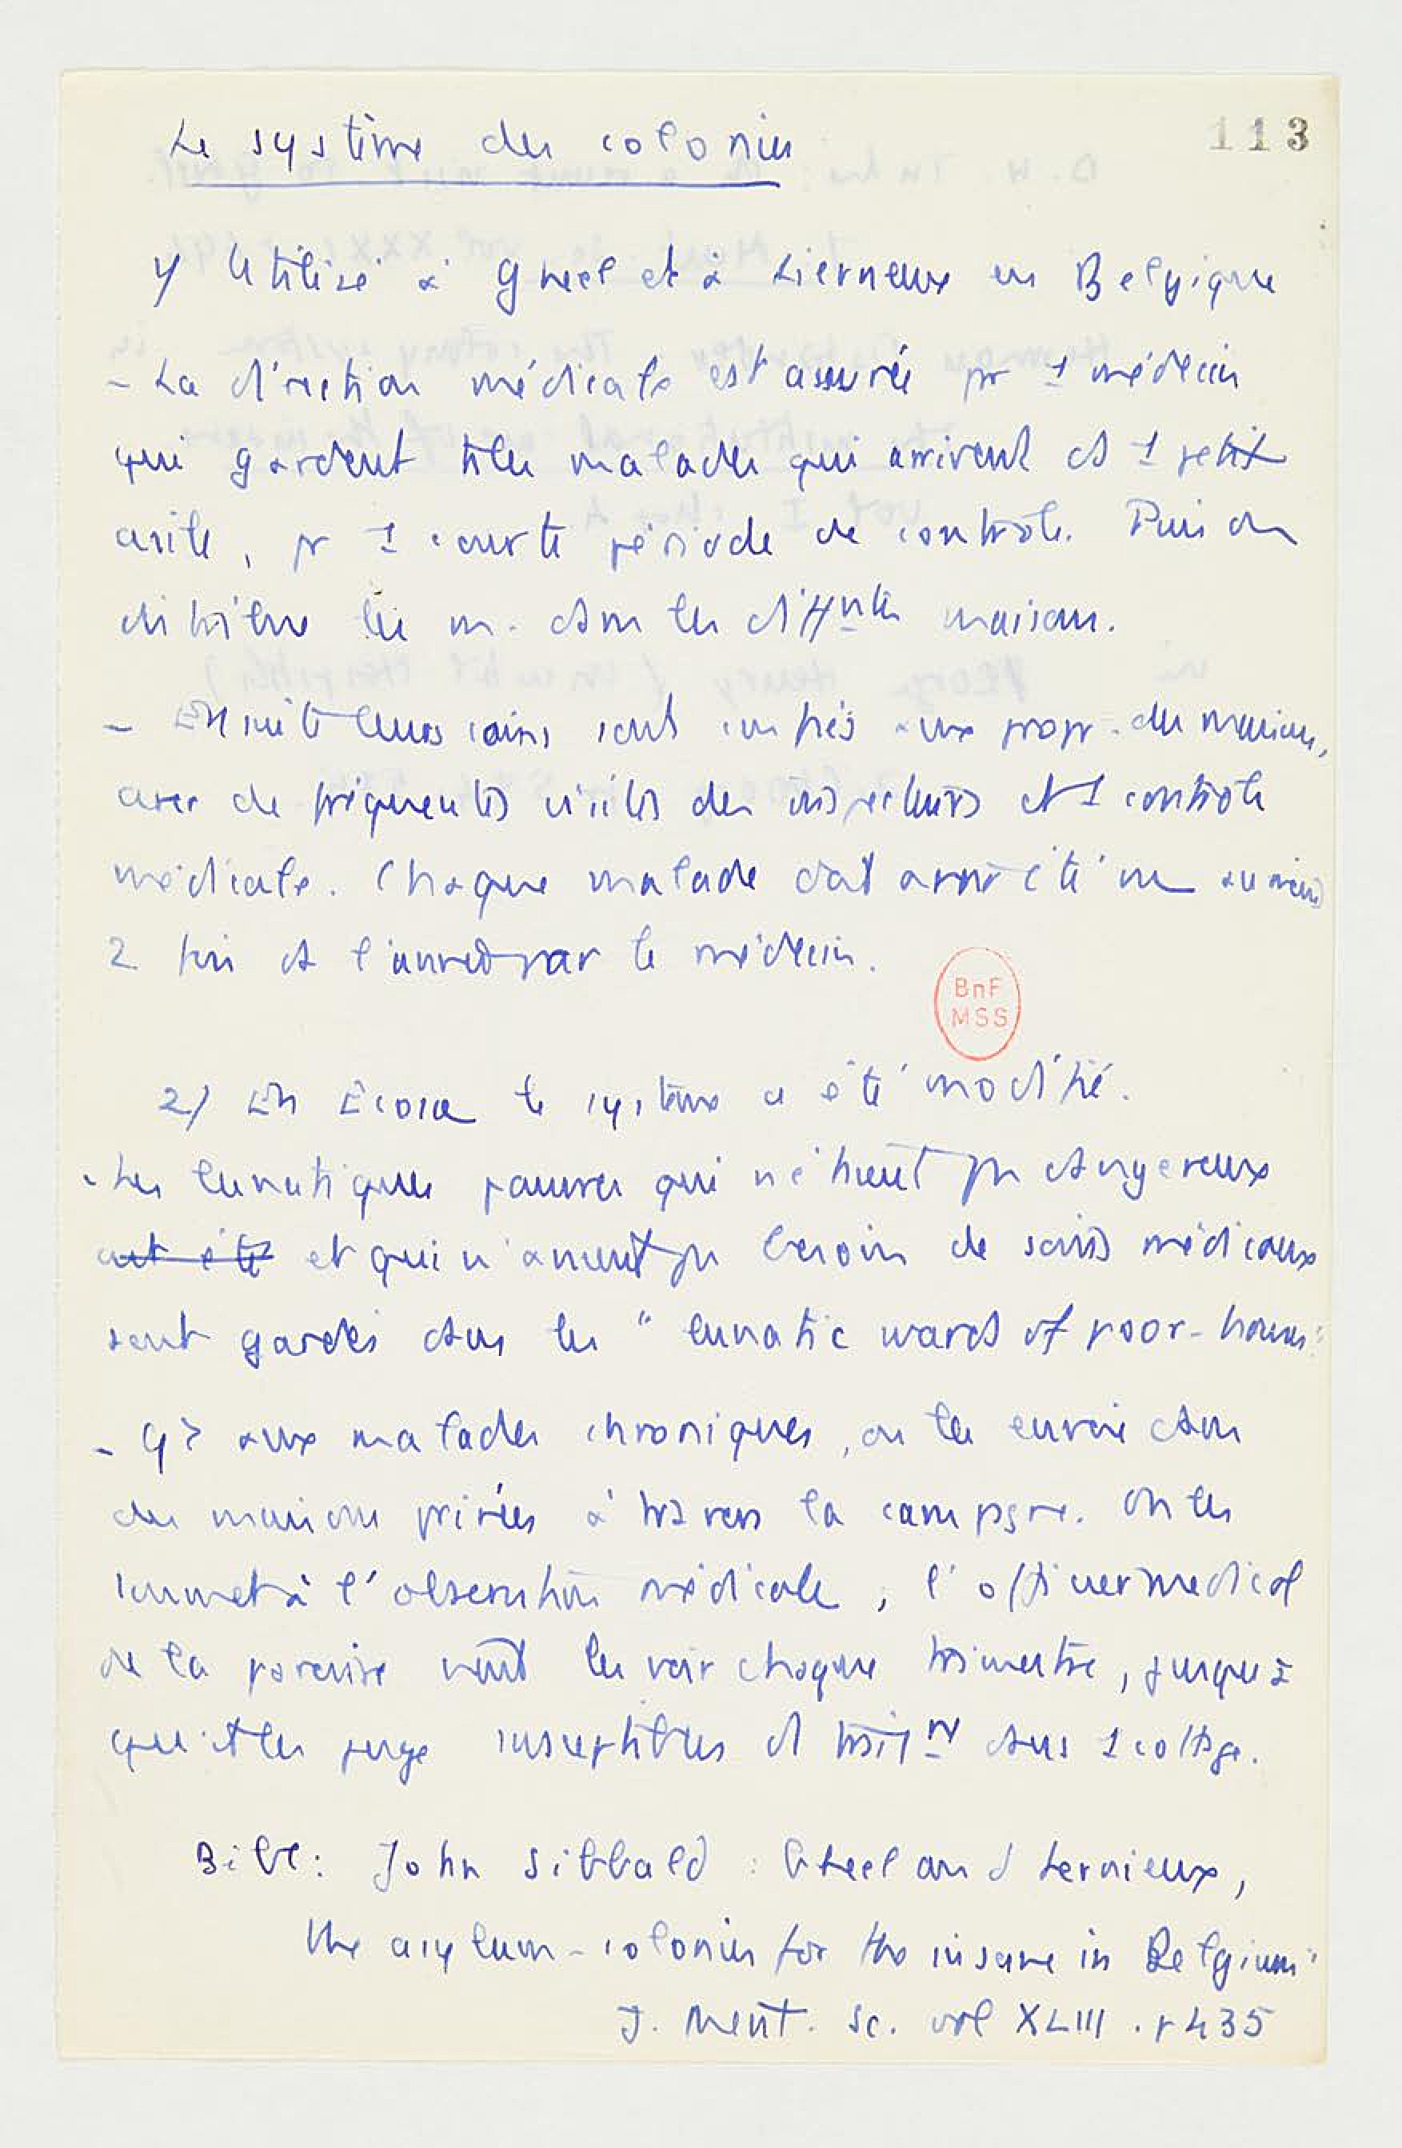 113
Le système des colonies
1/ Utilisé à Gheel et à Lierneux en Belgique
- La direction médicale est assurée pr 1 médecin
qui gardent ts les malades qui arrivent ds 1 petit
asile, pr 1 courte période de contrôle. Puis on
distribue les m. dans les diffntes maisons.
- Ensuite leurs soins sont confiés aux propr. des maisons,
avec de fréquentes visites des inspecteurs et 1 contrôle
médicale. Chaque malade doit avoir été vu au moins
2 fois ds l'année par le médecin.
BnF
MSS
2/ En Ecosse le système a été modifié.
- Les lunatiques pauvres qui n'étaient pas dangereux
ont été et qui n'avaient pas besoin de soins médicaux
sont gardés dans les "lunatic wards of poor-houses"
- Q? aux malades chroniques, on les envoie dans
des maisons privées à travers la campagne. On les
soumet à l'observation médicale ; l'officier medical
de la paroisse vient les voir chaque trimestre, jusqu'à
qu'il les juge susceptibles d
dans 1 cottage.
Bibl: John Sibbald : Gheel and Lernieux,
the asylum-colonies for the insane in Belgium"
J. Ment. Sc. vol XLIII . p 435